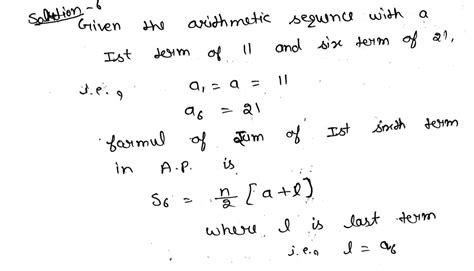 Solution-6
Given the arithmetic sequence with a
Ist term of 11 and six term of 21,
i.e., a₁ = a = 11
a₆ = 21
formul of Sum of Ist sixth term
in A.P. is
S₆ = n/2 [a+l)
where l is last term
i.e., l = a₆